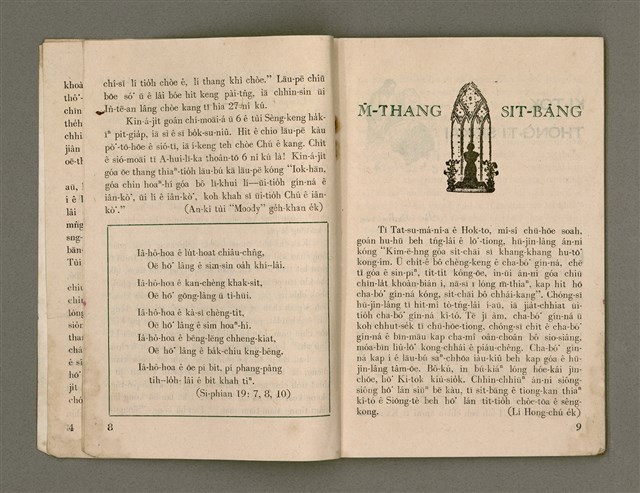 khoà
thó·-
chīn
thè-
chhi
jiân
oē-th
aū,
i ê l
lâi
mn̄g
sng-
bān-
Túi
chiu
chín
lóng
siōn
tha
chá
ê sî
hō·
jit
chó
4
chi-sī lí tio̍h chòe ê, lí thang khì chòe.” Lāu-pē chiū
bōe sò· ū ê lâi bóe hit keng pài-tn̂g, iā chhin-sin ùi
Ìn-tē-an lâng chòe kang tī hia 27 nî kú.
Kin-á-ji̍t goán chí-moāi-á ū 6 ê tùi Sèng-keng ha̍k-
īⁿ pit-gia̍p, iā sī ê sī bo̍k-su-niû. Hit ê chio lāu-pē kàu
pò·-tō-hōe ê siō-tī, iā í-keng teh chòe Chú ê kang. Chit
ê siō-moāi tī A-hui-lī-ka thoân-tō 6 nî kú là! Kin-á-ji̍t
góa ōe thang thiaⁿ-tio̍h lāu-bú kā lāu-pē kóng “Iok-hān,
góa chin hoaⁿ-hí góa bô lī-khui lí—ūi-tio̍h gín-ná ê
iân-kò·, ūi lí ê iân-kò·, koh khah sī ūi-tio̍h Chú ê iân-
kò·.” (An-ki tùi “Moody” ge̍h-khan e̍k)
Iâ-hô-hoa ê lu̍t-hoat chiâu-chn̂g,
Oē hō· lâng ê sim-sîn oa̍h khí--lâi.
Iâ-hô-hoa ê kan-chèng khak-si̍t,
Oē hō· gōng-lâng ū tì-hūi.
Iâ-hô-hoa ê kà-sī chèng-ti̍t,
Oē hō· lâng ê sim hoaⁿ-hí.
Iâ-hô-hoa ê bēng-lēng chheng-kiat,
Oē hō· lâng ê ba̍k-chiu kng-bêng.
Iâ-hô-hoa ê ōe pí bi̍t, pí phang-pâng
tih--lo̍h- lâi ê bi̍t khah tiⁿ.
(Si-phian 19: 7, 8, 10)
8
M̄-THANG SIT-BĀNG
Tī Tat-su-má-ní-a ê Hok-to, mî-sî chū-hōe soah,
goán hu-hū beh tńg-lâi ê lō·-tiong, hū-jîn-lâng án-ni
kóng “Kim-ē-hng góa si̍t-chāi sī khang-khang hu-tō·
kong-im. Ū chi̍t-ê bô chèng-keng ê cha-bó· gín-ná, chē
tī góa ê sin-piⁿ, ti̍t-ti̍t kóng-ōe, in-ūi án-ni góa chiū
chin-la̍t khoàn-biān i, nā-sī i lóng m̄-thiaⁿ, kap hit hō
cha-bó· gín-ná kóng, si̍t-chāi bô chhái-kang”. Chóng-sī
hū-jîn-lâng tī hit-mî tò-tńg-lâi í-āu, iā ja̍t-chhiat ūi-
tio̍h cha-bó· gín-ná kî-tó. Tē jī àm, cha-bó· gín-ná ū
koh chhut-se̍k tī chū-hōe-tiong, chóng-sī chit ê cha-bó·
gín-ná ê bīn-māu kap cha-mî oân-choân bô sio-siâng,
móa-bīn liû-lō· kong-chhái ê piáu-chêng. Cha-bó· gín-
ná kap i ê lāu-bú saⁿ-chhōa iau-kiû beh kap góa ê hū-
jîn-lâng tâm-ōe. Bô-kù, in bú-kiáⁿ lóng hóe-kái jīn-
chōe, hō· Ki-tok kiù-sio̍k. Chhin-chhiūⁿ án-ni siông-
siông hō· lán siūⁿ bē kàu, tī sit-bāng ê tiong-kan thiaⁿ
kî-tó ê Siōng-tè beh hō· lán ti̍t-tio̍h chòe-tōa ê sêng-
kong. (Lí Hong-chú e̍k)
9